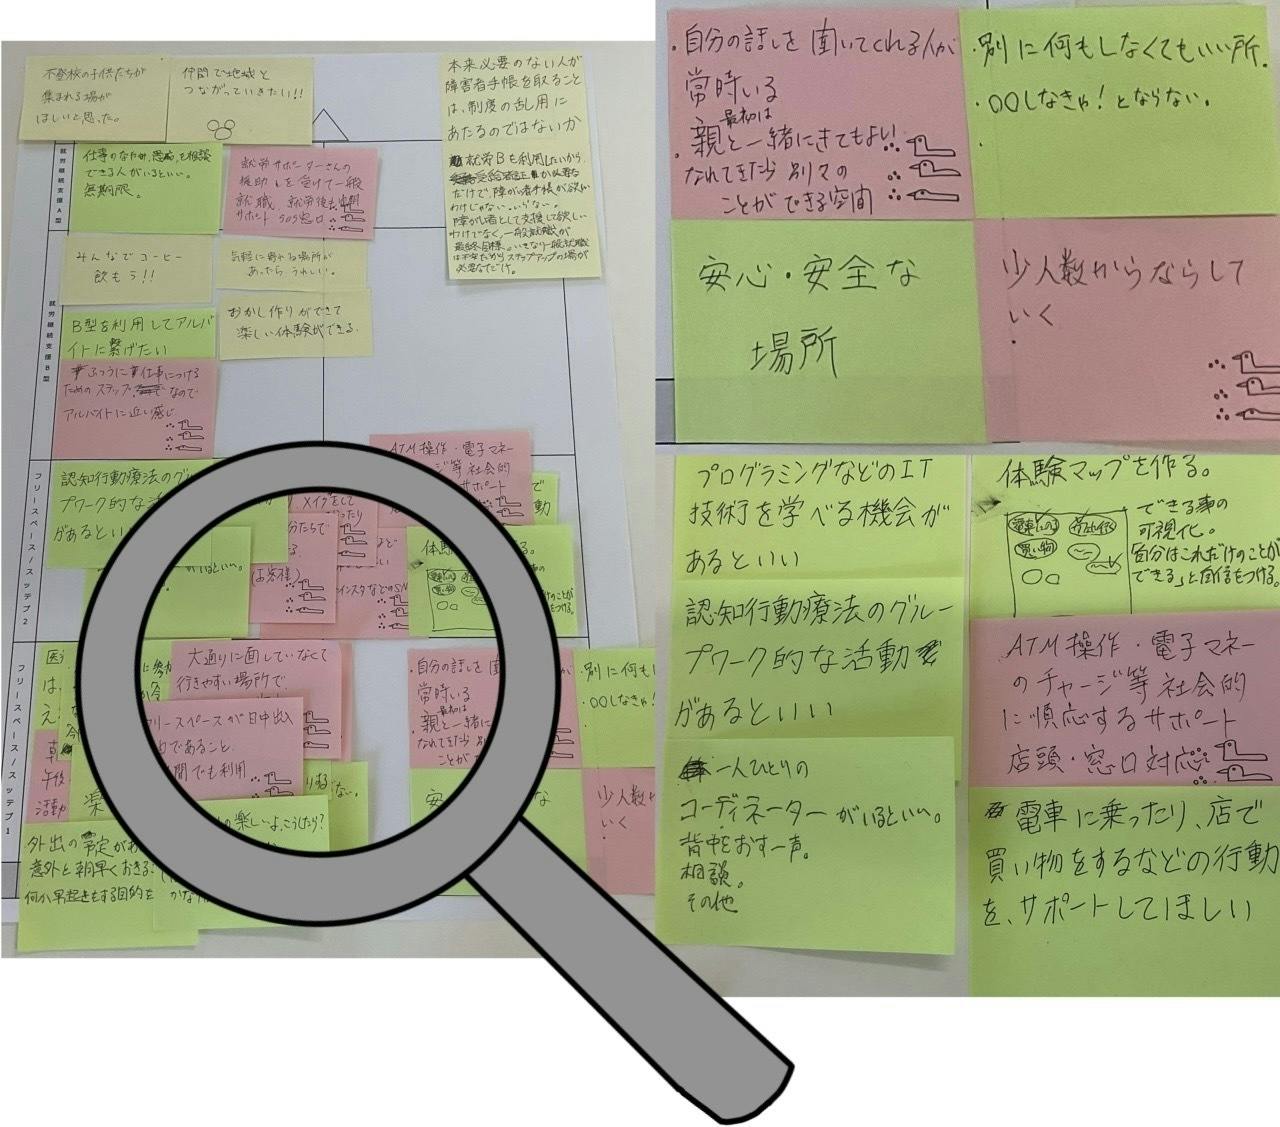 不登校の子供たちが
集まれる場が
ほしいと思った。
仲間で地域と
つながっていきたい!!
本来必要のない人が
障害者手帳を取ること
は、制度の乱用に
あたるのではないか
就労Bも利用したいから
だけで障がい者手帳が欲しい
わけじゃない。いらない。
障がい者として支援して欲しい
わけでなく、一般就職が
最終目標。いきなり一般就職
は不安だからステップアップの場が
必要なだけ。
就労継続支援A型
仕事のなやみ、愚痴、を相談
できる人がいるといい。
無期限。
就労サポーターさんの
援助を受けて一般
就職、就労後も定期
サポート SOS窓口
就労継続支援B型
みんなでコーヒー
飲もう!!
気軽に寄れる場所が
あったらうれしい。
おかし作りができて
楽しい体験ができる。
B型を利用してアルバ
イトに繋げたい
ふつうに仕事につける
ためのステップ なので
アルバイトに近い感じ
フリースペース/ステップ2
認知行動療法のグル
プワーク的な活
があるといい
ATM操作・電子マネ
等社会的
サポート
メイクをして
分たちで
がいるといい。
(お客様)
インスタなどのSN
フリースペース/ステップ1
大通りに面していなくて
行きやすい場所で
リースペースが日中出
であること
間でも利用
自分の話しを
常時いる
最初は
親と一緒に
なれてきたら
ことが
別に何も
〇〇しなきゃ!
少人数
いく
午後
活動
楽
の楽しいよ、こうしたら?
外出の予定が
意外と朝早くおきる。
何か早起きをする目的を
・自分の話しを聞いてくれる人が
常時いる
最初は
・親と一緒にきてもよい!!
なれてきたら別々の
ことができる空間
・別に何もしなくてもいい所。
・〇〇しなきゃ!とならない。
安心・安全な
場所
少人数からならして
いく
プログラミングなどのIT
技術を学べる機会が
あるといい
認知行動療法のグルー
プワーク的な活動
があるといい
一人ひとりの
コーディネーターがいるといい。
背中をおす一声。
相談。
その他
体験マップを作る。
電車にのる
買い物
・できる事の
可視化。
「自分はこれだけのことが
できる」と自信をつける。
ATM操作・電子マネー
のチャージ等社会的
に順応するサポート
店頭・窓口対応
電車に乗ったり、店で
買い物をするなどの行動
を、サポートしてほしい